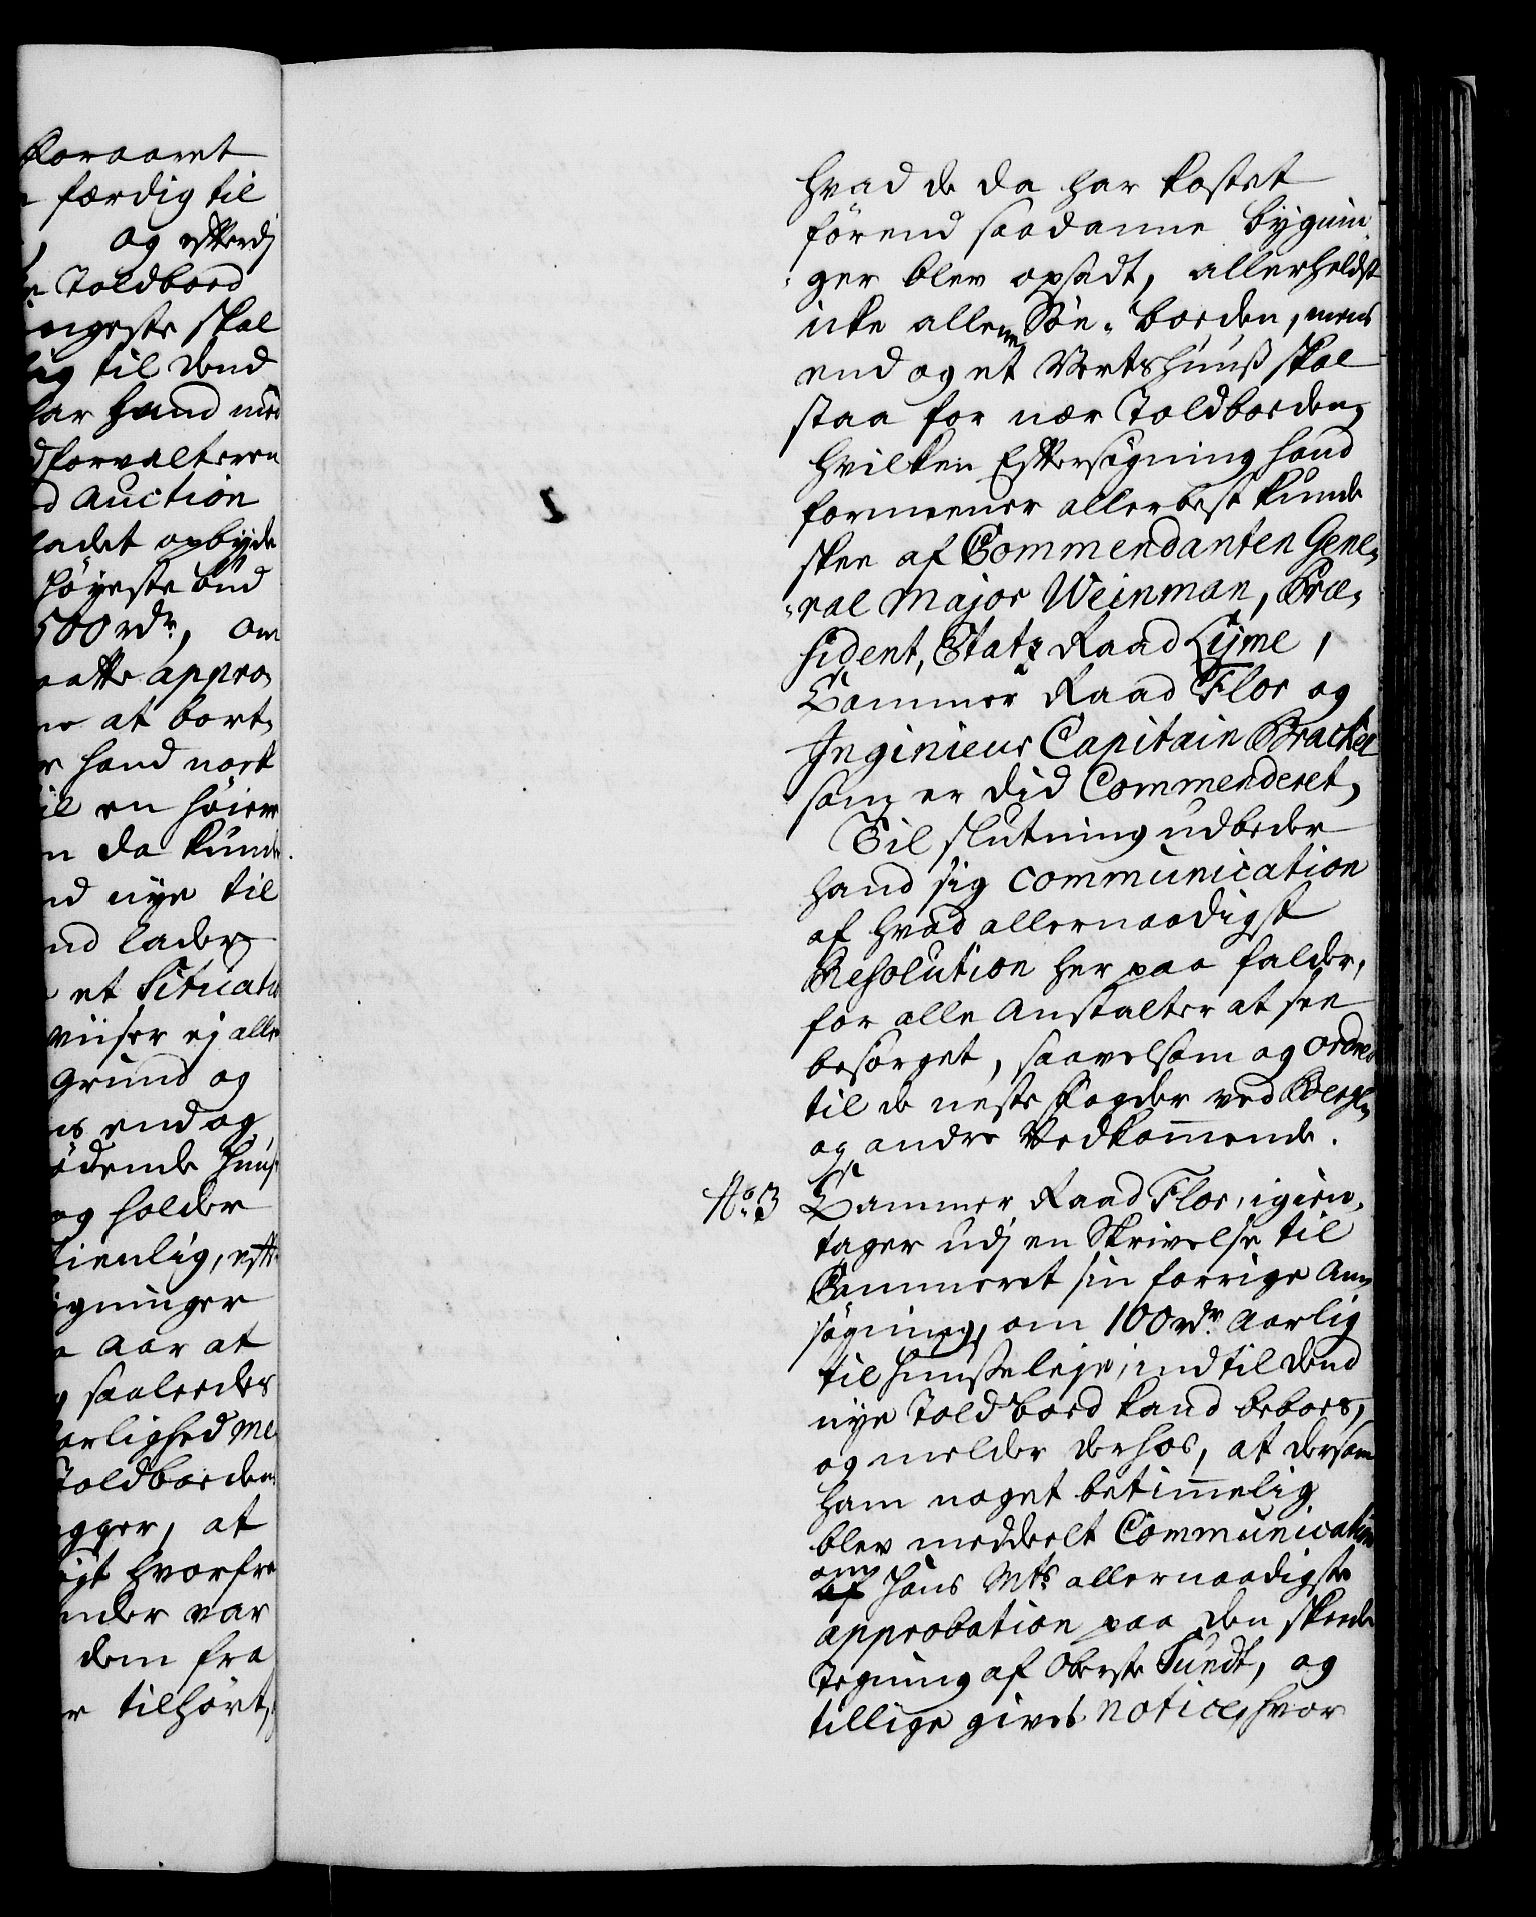 foraaret
færdig til
og efterdj
Toldboed
ringeste skal
lig til dend
har hand med
dforvalteren
d Auction
ladet opbyde
høyeste bud
500 rdr, om
maatte appro,
at bort,
hand nock
til en høiere
da kunde
nd nye til
nd lader
et Situati
viiser ej alle
Grund og
end og
ødende huus
og holder
tienlig, eft
gninger
Aar at
saaledes
arlighed me
Toldboeden
gger, at
igt hvorfra
nder var
dem fra
tilhört,
hvad de da har kostet
förend saadanne bygnin
ger blev opsadt, allerheldst
icke allene Söe-boeden, mens
end og et Vertshuuß skal
staa for nær Toldboeden,
hvilken Eftersögning hand
formeener allerbest kunde
skee af Commendanten Gene,
ral Major Weinman, Præ,
sident, Etatz Raad Lijme,
Cammer Raad Flor og
Inginieur Capitain Bracker
som er did Commenderet,
Til slutning udbeder
hand sig communication
af hvad allernaadigst
Resolution her paa falder,
for alle Anstalter at see
besörget, saavelsom og ordres
til de neste fogder ved Bergen
og andre Vedkommende.
No 3 Cammer Raad Flor, igien,
tager udj en Skrivelse til
Cammeret sin forrige An,
søgning, om 100 rdr Aarlig
til huusseleje, indtil dend
nye Toldboed kand beboes,
og melder derhos, at dersom
ham noget betimmelig
blev meddeelt Communication
om
af Hans Mts allernaadigste
approbation paa den skeede
Tegning af Oberste Sundt, og
tillige gives notice, hvor